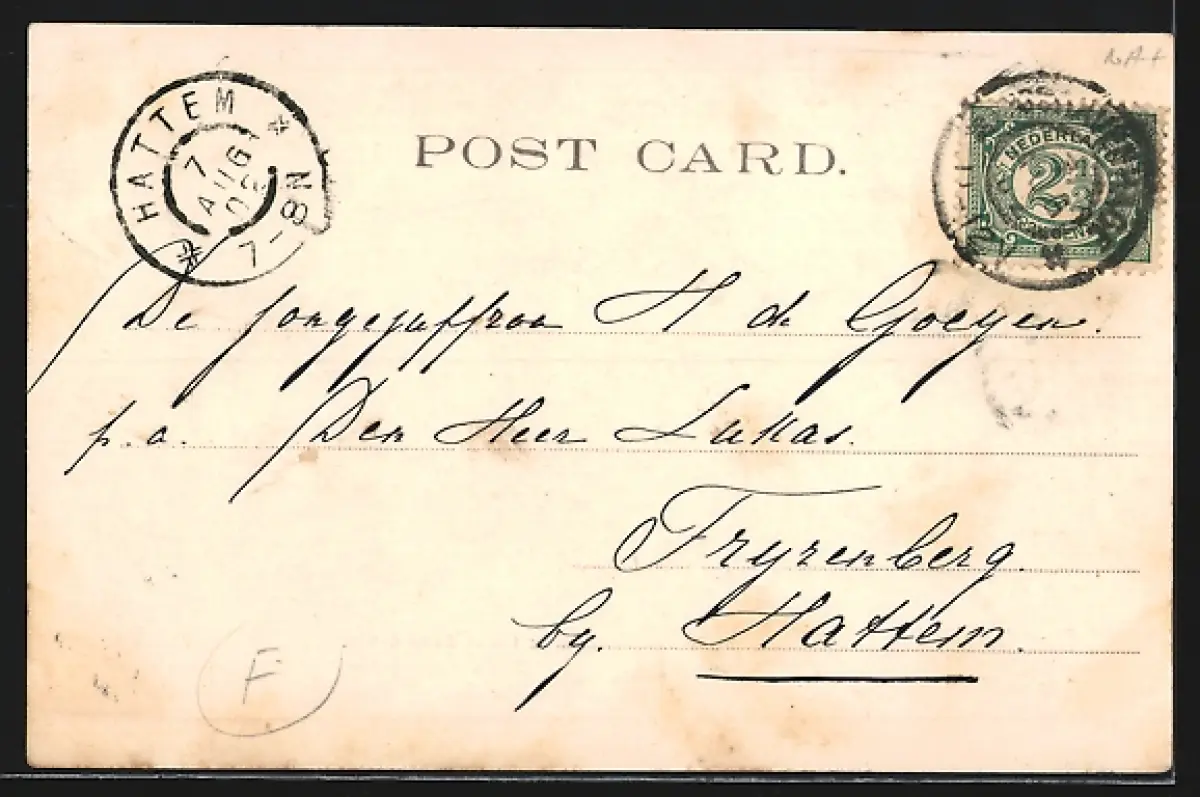 HATTEM
7 AUG 02
7-8N
POST CARD.
NEDERLAND
2½
De jongejuffrou H de Goeyen.
p.a. Den Heer Lukas.
Tryzenberg.
by. Hattem.
F